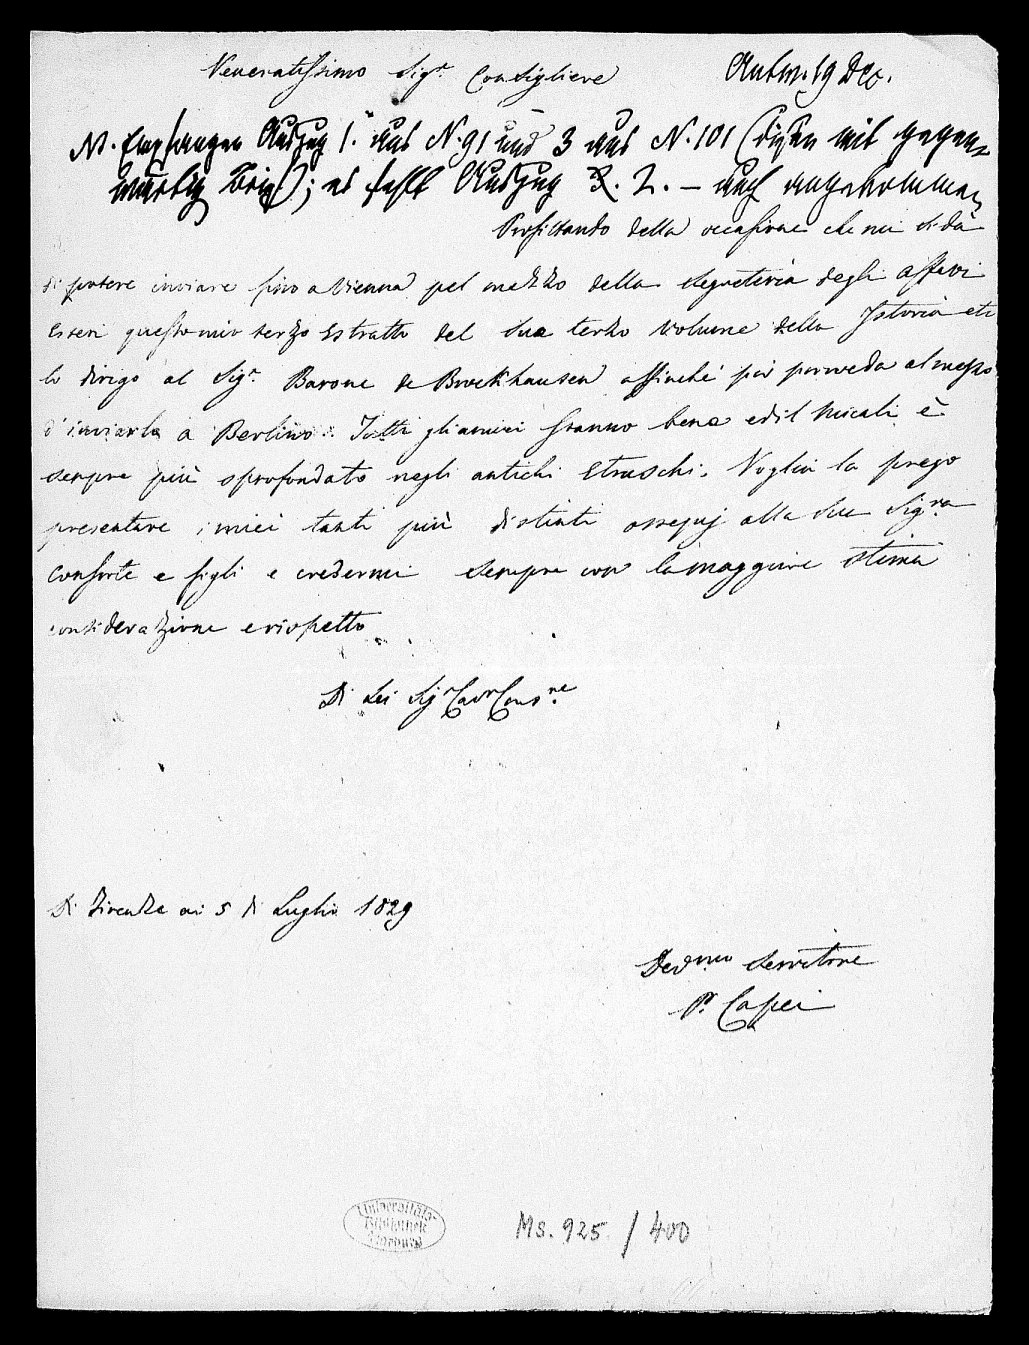 Veneratissimo Sigr. Consigliere
Antw. 19 Dec.
N. Empfangen Auszug 1. aus N. 91 und 3 aus N. 101 (diesen mit gegen-
wärtig Brief); es fehlt Auszug 2. – auch angekommen
Profittando della occasione che mi si dà
di potere inviare fino a Vienna pel mezzo della Segreteria degli Affari
Esteri questo mio terzo Estratto del Suo terzo volume della Istoria etc
lo dirigo al Sigr. Barone de Brockhausen affinché poi provveda al mezzo
d'inviarlo a Berlino. Tutti gli amici stanno bene ed il Micali è
sempre più sprofondato negli antichi Etruschi. Voglia la prego
presentare i miei tanti più distinti ossequj alla Sua Sigra
Consorte e figli e credermi sempre con la maggiore stima
considerazione e rispetto
Di Lei Sigr Cavr Consre
Di Firenze ai 5 di Luglio 1829
Devmo Servitore
Pr Capei
Universitäts-
Bibliothek
Marburg
Ms. 925 / 400